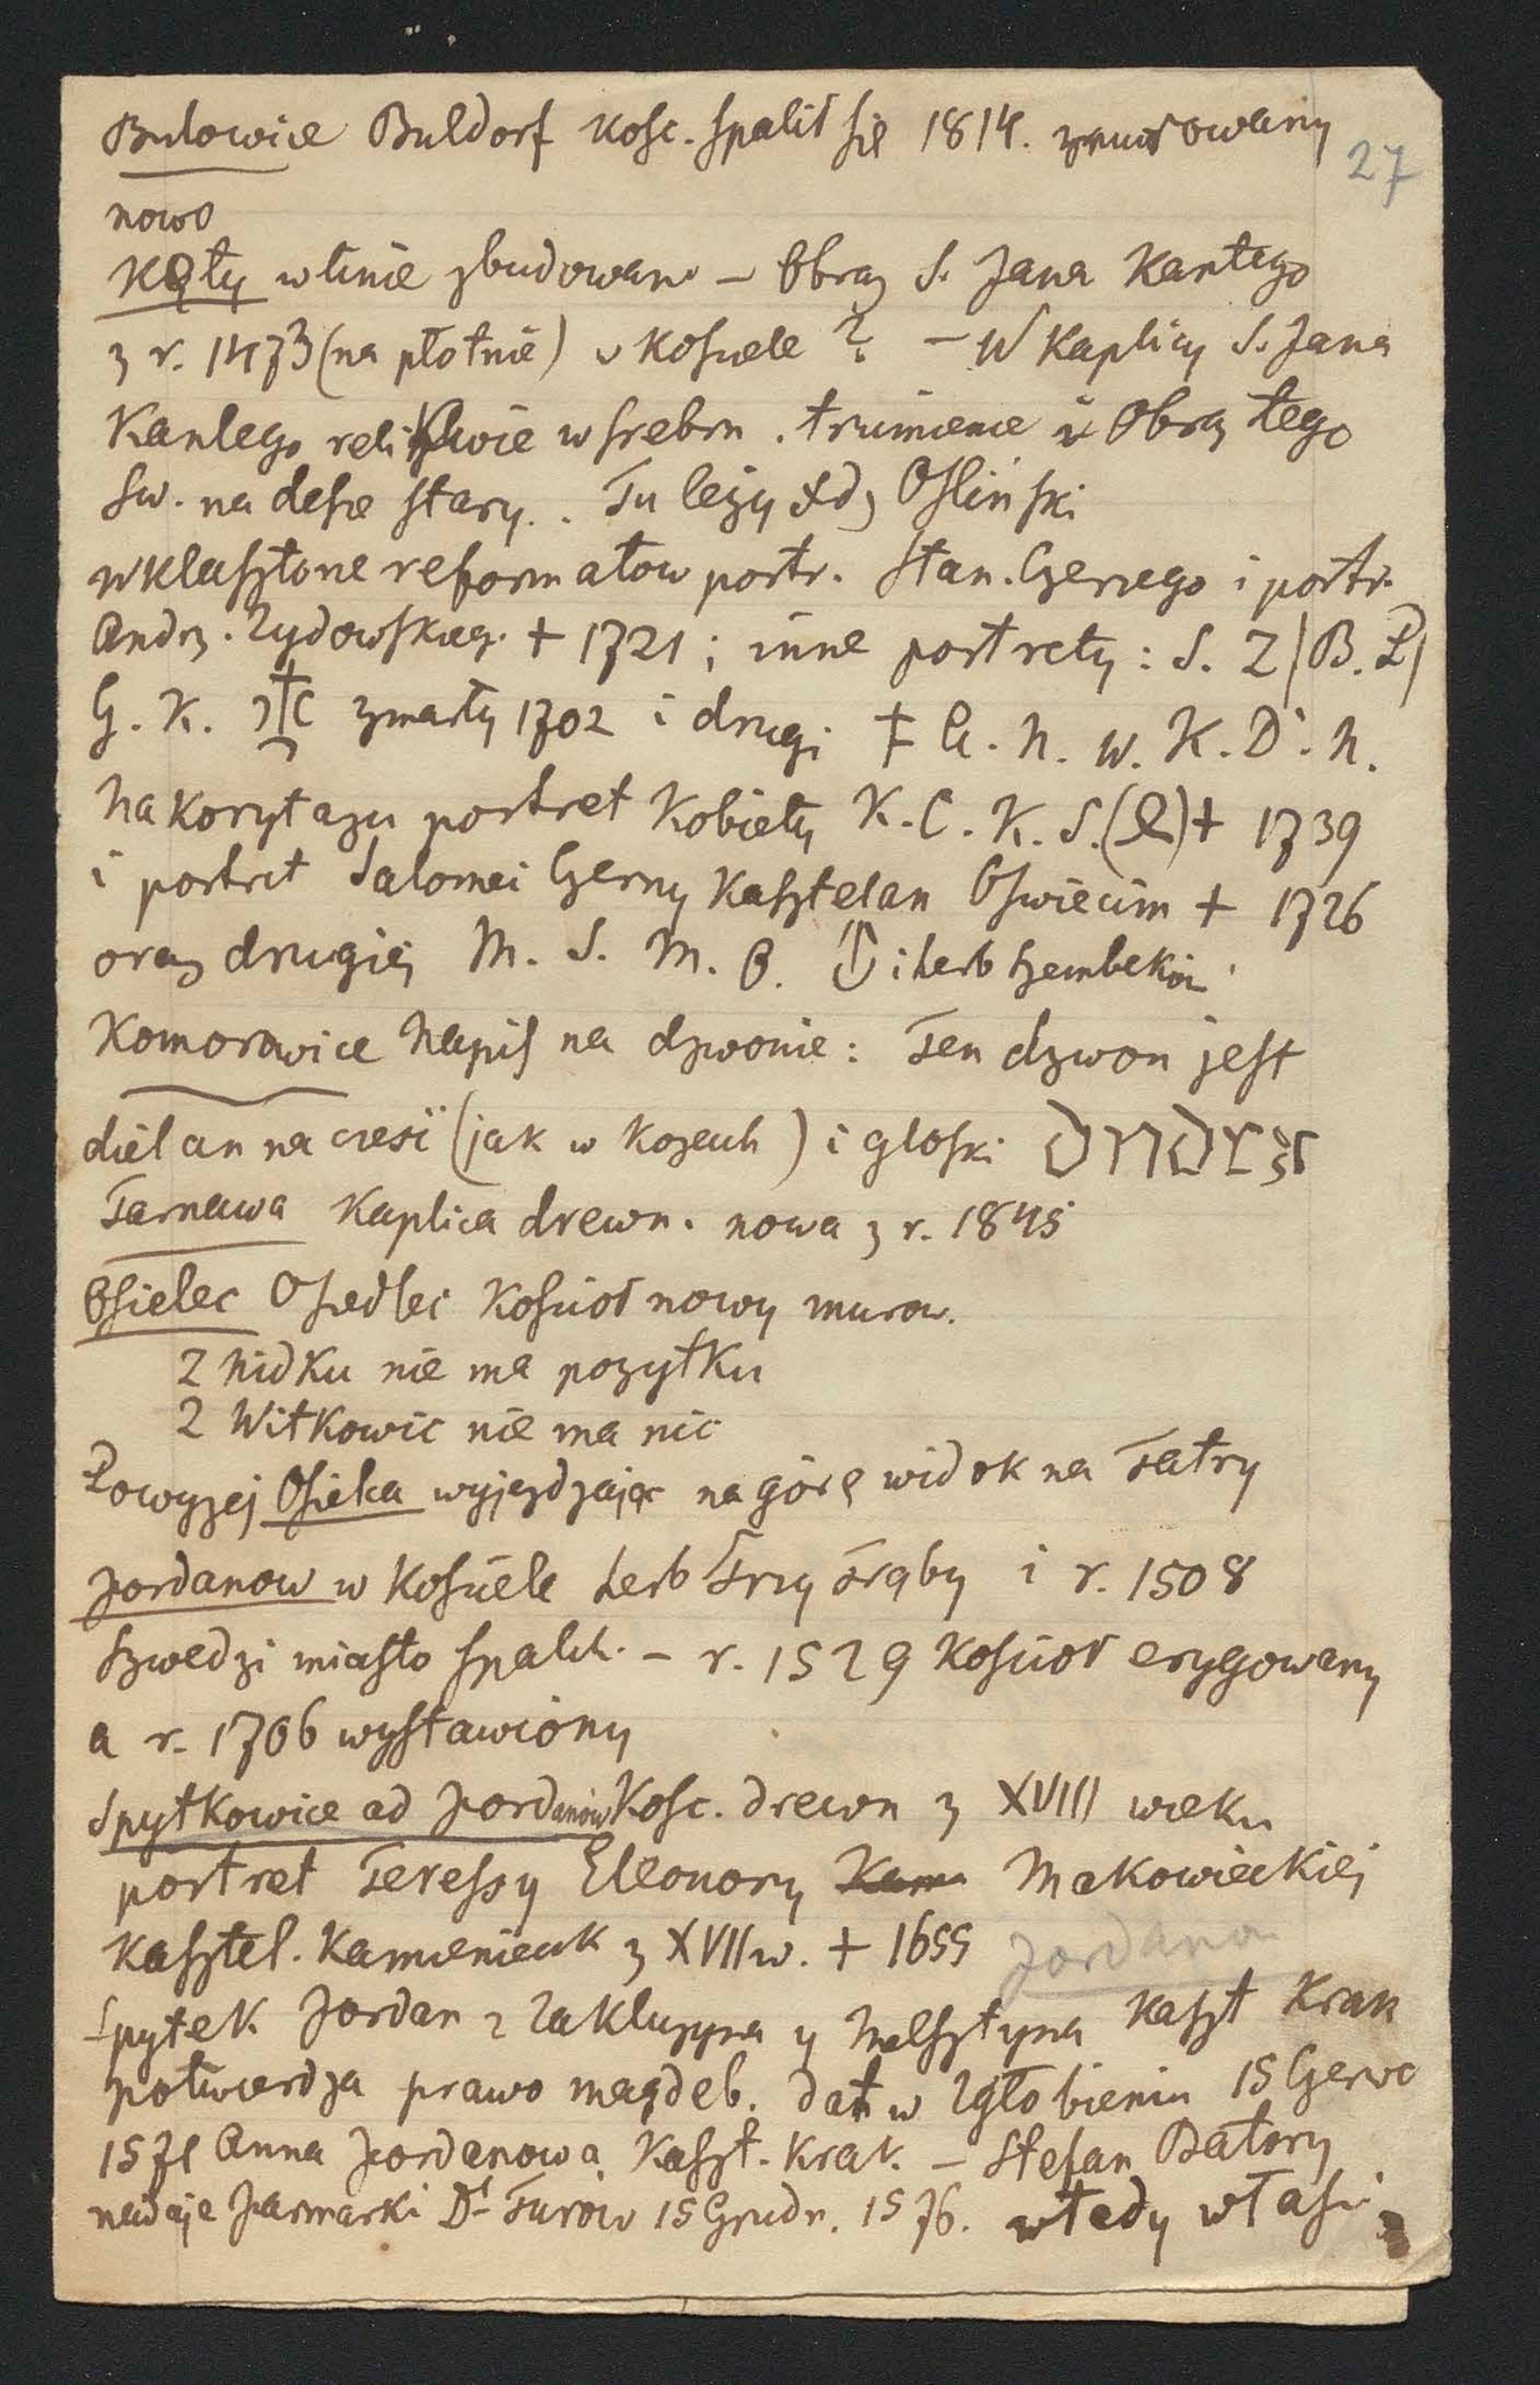 Bulowice Buldorf Kośc. spalił się 1814. zmurowany
27
nowo
Kęty w linie zbudowane – Obraz S. Jana Kantego
z r. 1473 (na płotnie) w Kościele ? – W Kaplicy S. Jana
Kantego relikwie w srebrn. trumience i Obraz tego
Sw. na desce stary.. Tu leży Xdz Osliński
w klasztorze reformatow portr. Stan. Czernego i portr.
Andrz. Zydowskieg. + 1721; inne portrety: S. Z (B. P)
G. K. zmarły 1702 i drugi + C. N. W. K. D. N.
Na korytazu portret Kobiety K. C. K. S. (L) + 1739
i portret Salomei Czerny Kasztelan Oswiecim + 1726
oraz drugiej M. S. M. B. i herb Szembekow
Komorowice Napis na dzwonie: Ten dzwon jest
dielan na czesi (jak w Kozach) i głoski
Tarnawa Kaplica drewn. nowa z r. 1845
Osielec Osiedlec Kościoł nowy murow.
Z Nidku nie ma pozytku
Z Witkowic nie ma nic
Powyzej Osieka wyjezdzając na górę widok na Tatry
Jordanow w Kościele herb Trzy Trąby i r. 1508
Szwedzi miasto spalili. – r. 1529 Kościoł erygowany
a r. 1706 wystawiony
Spytkowice ad Jordanów Kosc. drewn z XVIII wieku
portret Teressy Eleonory Makowieckiej
Kasztel. Kamienieck z XVII w. + 1655
Jordana
Spytek Jordan z Zakluzyna y Melsztyna Kaszt Krak
potwierdza prawo magdeb. dat w Zgłobieniu 15 Czerwc
1571 Anna Jordanowa Kaszt. Krak. – Stefan Batory
nadaje Jarmarki Dt Turow 15 Grudn. 1576. wtedy właści